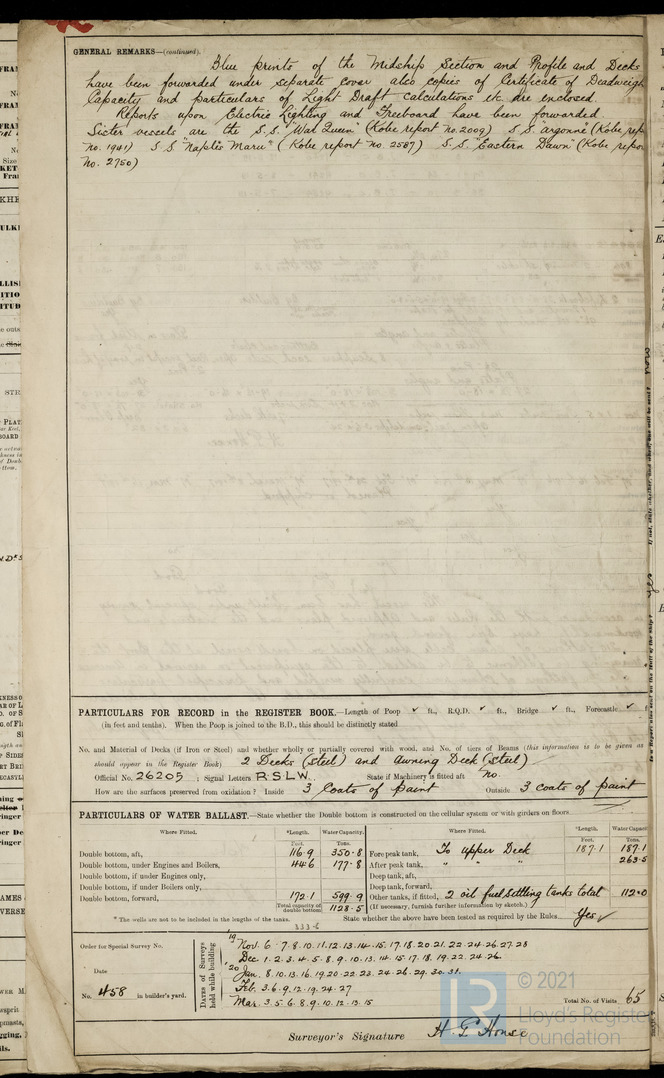 GENERAL REMARKS—(continued).
Blue prints of the Midship Section and Profile and Decks
have been forwarded under separate cover also copies of Certificate of Deadweigh
Capacity and particulars of Light Draft calculations etc are enclosed.
Reports upon Electric Lighting and Freeboard have been forwarded
Sister vessels are the S.S. "War Queen" (Kobe report No. 2009) S.S. "Argonne" (Kobe rep
No. 1941) S.S "Naples Maru" (Kobe report No. 2587) S.S. "Eastern Dawn" (Kobe repor
No. 2750)
PARTICULARS FOR RECORD in the REGISTER BOOK.—Length of Poop ✓ ft., R.Q.D. ✓ ft., Bridge ✓ ft., Forecastle ✓ f
(in feet and tenths). When the Poop is joined to the B.D., this should be distinctly stated
No. and Material of Decks (if Iron or Steel) and whether wholly or partially covered with wood, and No. of tiers of Beams (this information is to be given as
should appear in the Register Book) 2 Decks (steel) and Awning Deck (steel)
Official No. 26205 ; Signal Letters R.S.L.W. State if Machinery is fitted aft No.
How are the surfaces preserved from oxidation? Inside 3 Coats of paint Outside 3 coats of paint
PARTICULARS OF WATER BALLAST.—State whether the Double bottom is constructed on the cellular system or with girders on floors
Where Fitted. *Length. Water Capacity. Where Fitted. *Length. Water Capaci
Feet. Tons. Feet. Tons.
Double bottom, aft, 116.9 350.8 Fore peak tank, To upper Deck 187.1 187.1
Double bottom, under Engines and Boilers, 44.6 177.8 After peak tank, " " " 263.5
Double bottom, if under Engines only, Deep tank, aft,
Double bottom, if under Boilers only, Deep tank, forward,
Double bottom, forward, 172.1 599.9 Other tanks, if fitted, 2 oil fuel settling tanks total 112.0
Total capacity of double bottom 1128.5 (If necessary, furnish further information by sketch.)
* The wells are not to be included in the lengths of the tanks. State whether the above have been tested as required by the Rules Yes ✓
Order for Special Survey No.
Date
No. 458 in builder's yard.
DATES of Surveys held while building
'19 Nov. 6. 7. 8. 10. 11. 12. 13. 14. 15. 17. 18. 20. 21. 22. 24. 26. 27. 28
Dec. 1. 2. 3. 4. 5. 8. 9. 10. 13. 14. 15. 17. 18. 19. 22. 24. 26.
'20 Jan. 8. 10. 13. 16. 19. 20. 22. 23. 24. 26. 29. 30. 31.
Feb. 3. 6. 9. 12. 19. 24. 27
Mar. 3. 5. 6. 8. 9. 10. 12. 13. 15
Total No. of Visits 65
Surveyor's Signature
© 2021
Lloyd's Registe
Foundation